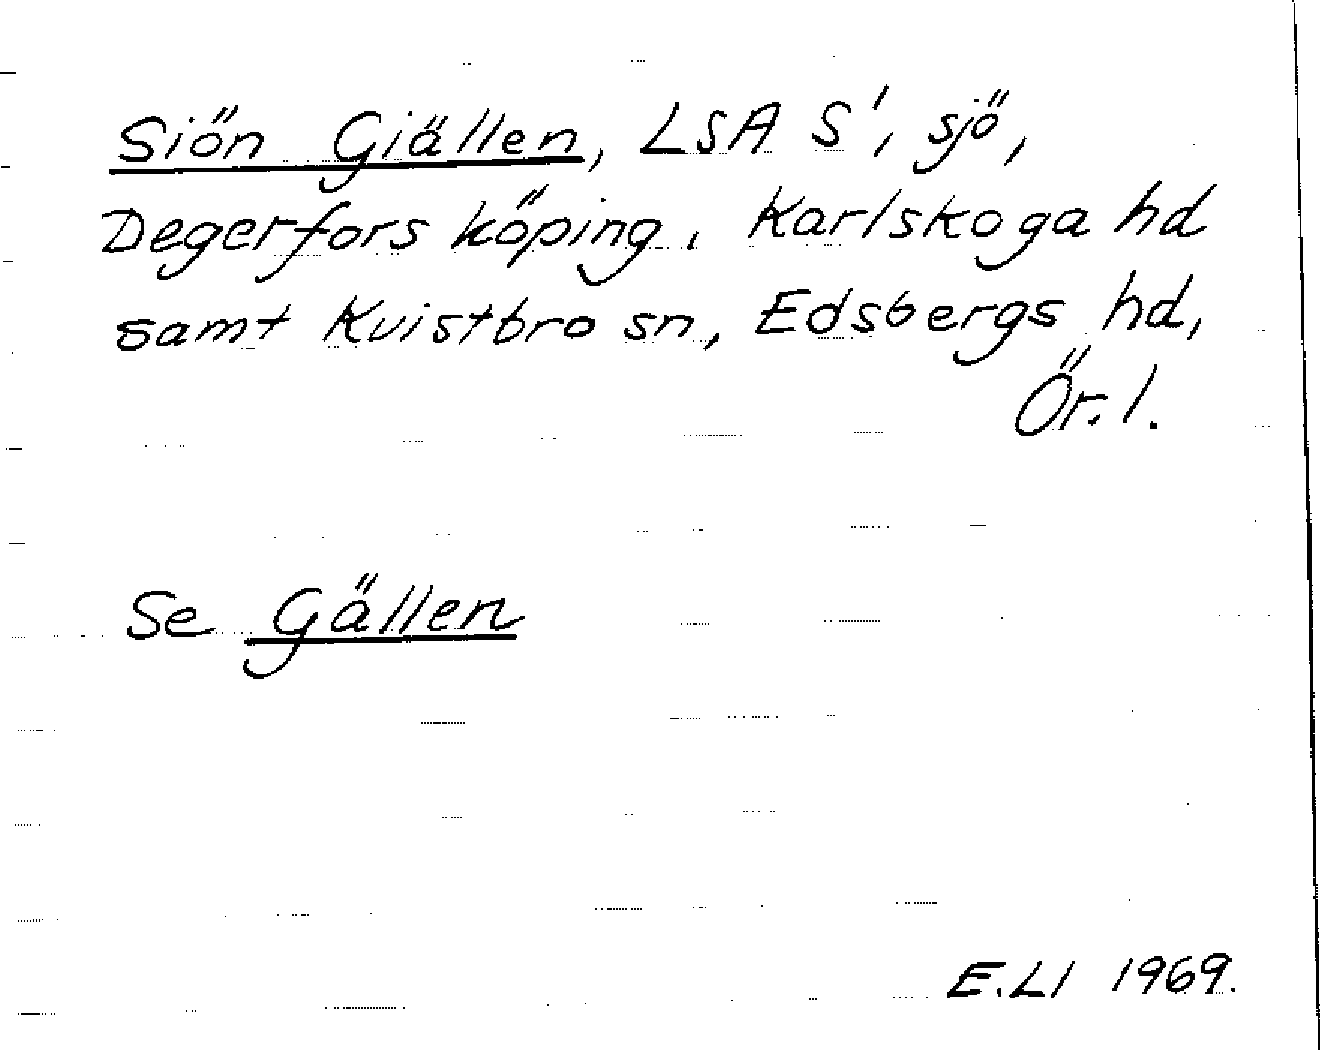 Siön Giällen, LSA S', sjö,
Degerfors köping, Karlskoga hd
samt Kvistbro sn., Edsbergs hd,
Ör. l.
Se Gällen
E.Ll 1969.